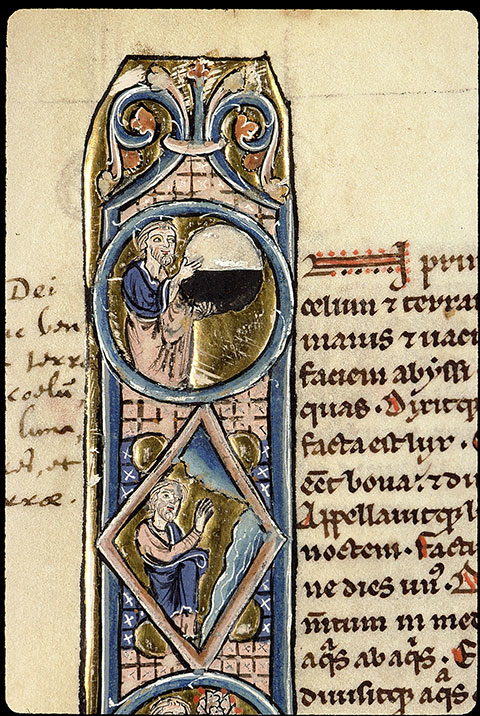 Dei
ben
terra
coelū,
luna,
et
rræ.
I prin
celum ⁊ terra
manis ⁊ uac
faciem abyssi
quas. Dixitqꝫ
facta est lux.
eēt bona: ⁊ di
Appellauitqꝫ l
noctem. Factū
ne dies un᷒. D
m̄tum in med
aq̄s ab aq̄s. E
diuisitqꝫ aq̄s